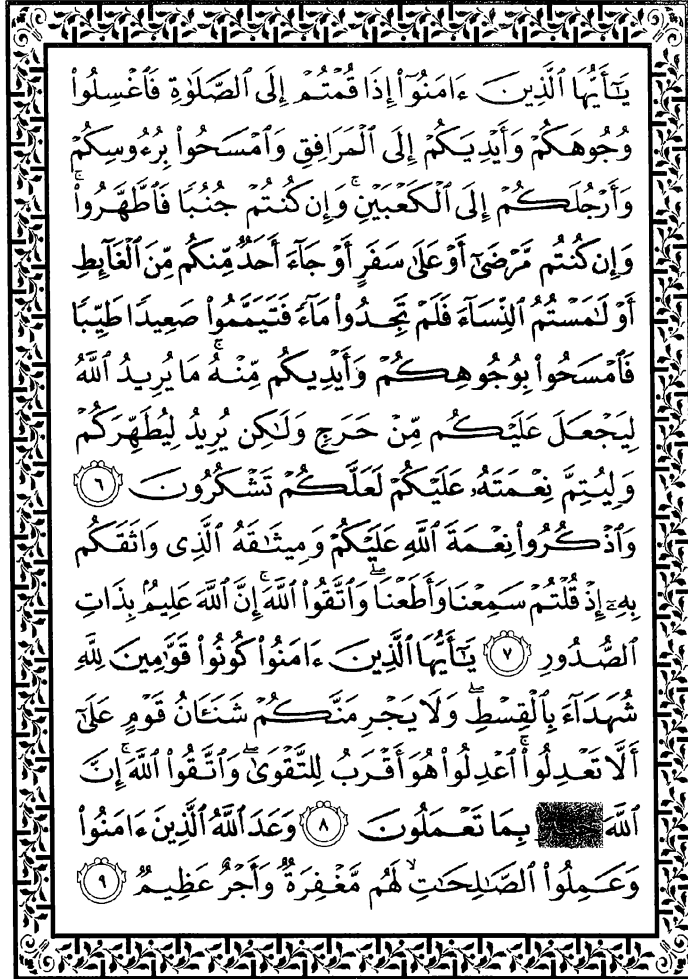 يَٰٓأَيُّهَا ٱلَّذِينَ ءَامَنُوٓا۟ إِذَا قُمْتُمْ إِلَى ٱلصَّلَوٰةِ فَٱغْسِلُوا۟
وُجُوهَكُمْ وَأَيْدِيَكُمْ إِلَى ٱلْمَرَافِقِ وَٱمْسَحُوا۟ بِرُءُوسِكُمْ
وَأَرْجُلَكُمْ إِلَى ٱلْكَعْبَيْنِ ۚ وَإِن كُنتُمْ جُنُبًا فَٱطَّهَّرُوا۟ ۚ
وَإِن كُنتُم مَّرْضَىٰٓ أَوْ عَلَىٰ سَفَرٍ أَوْ جَآءَ أَحَدٌ مِّنكُم مِّنَ ٱلْغَآئِطِ
أَوْ لَٰمَسْتُمُ ٱلنِّسَآءَ فَلَمْ تَجِدُوا۟ مَآءً فَتَيَمَّمُوا۟ صَعِيدًا طَيِّبًا
فَٱمْسَحُوا۟ بِوُجُوهِكُمْ وَأَيْدِيكُم مِّنْهُ ۚ مَا يُرِيدُ ٱللَّهُ
لِيَجْعَلَ عَلَيْكُم مِّنْ حَرَجٍ وَلَٰكِن يُرِيدُ لِيُطَهِّرَكُمْ
وَلِيُتِمَّ نِعْمَتَهُۥ عَلَيْكُمْ لَعَلَّكُمْ تَشْكُرُونَ ٦
وَٱذْكُرُوا۟ نِعْمَةَ ٱللَّهِ عَلَيْكُمْ وَمِيثَٰقَهُ ٱلَّذِى وَاثَقَكُم
بِهِۦٓ إِذْ قُلْتُمْ سَمِعْنَا وَأَطَعْنَا ۖ وَٱتَّقُوا۟ ٱللَّهَ ۚ إِنَّ ٱللَّهَ عَلِيمٌۢ بِذَاتِ
ٱلصُّدُورِ ٧ يَٰٓأَيُّهَا ٱلَّذِينَ ءَامَنُوا۟ كُونُوا۟ قَوَّٰمِينَ لِلَّهِ
شُهَدَآءَ بِٱلْقِسْطِ ۖ وَلَا يَجْرِمَنَّكُمْ شَنَـَٔانُ قَوْمٍ عَلَىٰٓ
أَلَّا تَعْدِلُوا۟ ۚ ٱعْدِلُوا۟ هُوَ أَقْرَبُ لِلتَّقْوَىٰ ۖ وَٱتَّقُوا۟ ٱللَّهَ ۚ إِنَّ
ٱللَّهَ بِمَا تَعْمَلُونَ ٨ وَعَدَ ٱللَّهُ ٱلَّذِينَ ءَامَنُوا۟
وَعَمِلُوا۟ ٱلصَّٰلِحَٰتِ ۙ لَهُم مَّغْفِرَةٌ وَأَجْرٌ عَظِيمٌ ٩